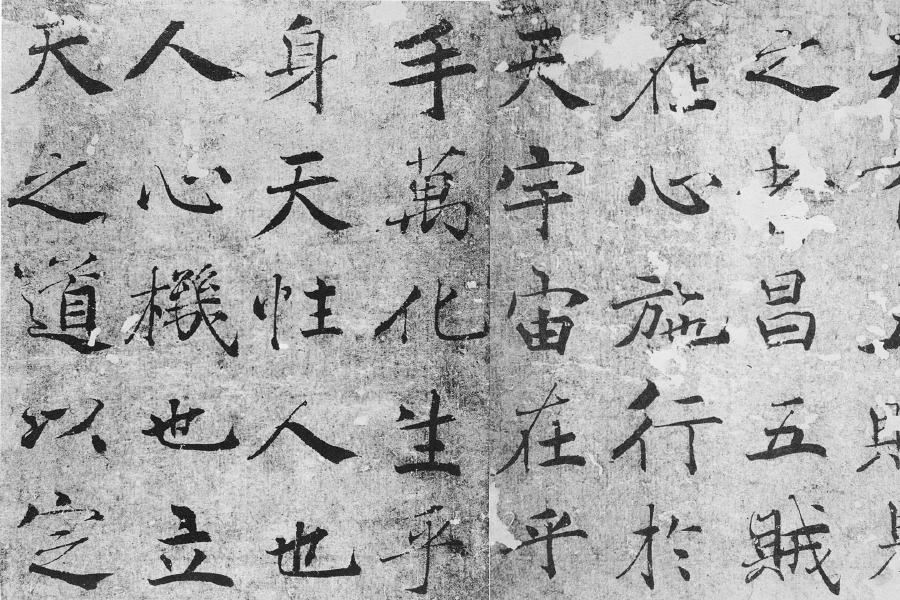 之者昌五賊
在心施行於
天宇宙在乎
手萬化生乎
身天性人也
人心機也立
天之道以定